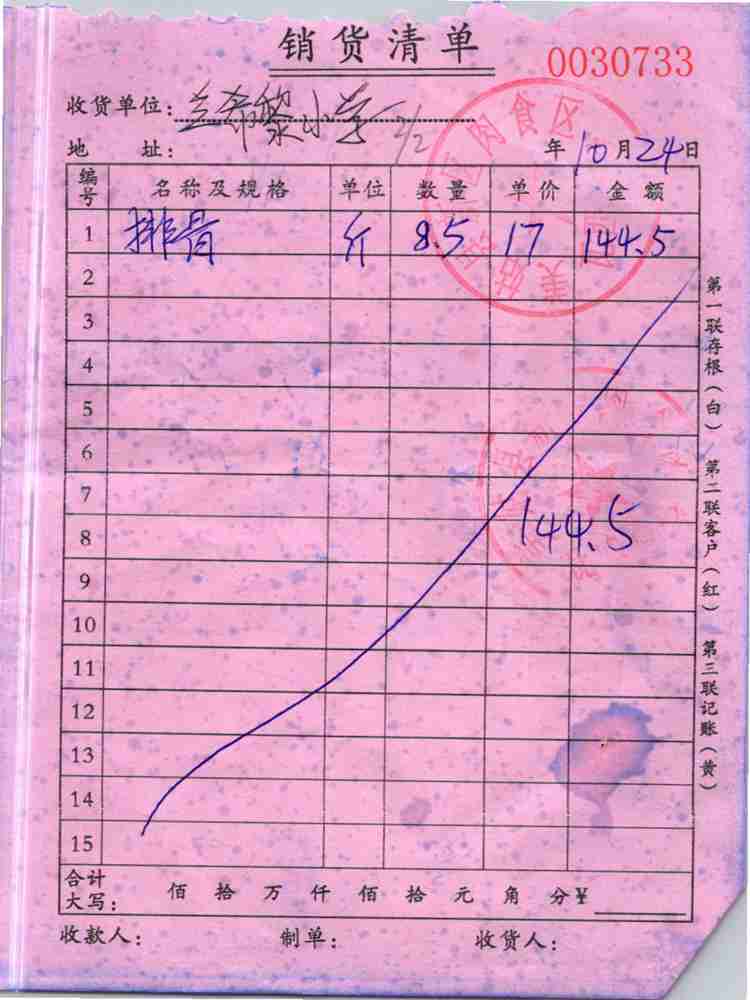 销货清单
0030733
收货单位：兰希黎小学
地 址： 年10月24日
编号 名称及规格 单位 数量 单价 金额
1 排骨 斤 8.5 17 144.5
2
3
4
5
6
7
8 144.5
9
10
11
12
13
14
15
合计大写： 佰 拾 万 仟 佰 拾 元 角 分 ¥
收款人： 制单： 收货人：
第一联存根（白） 第二联客户（红） 第三联记账（黄）
肉食区